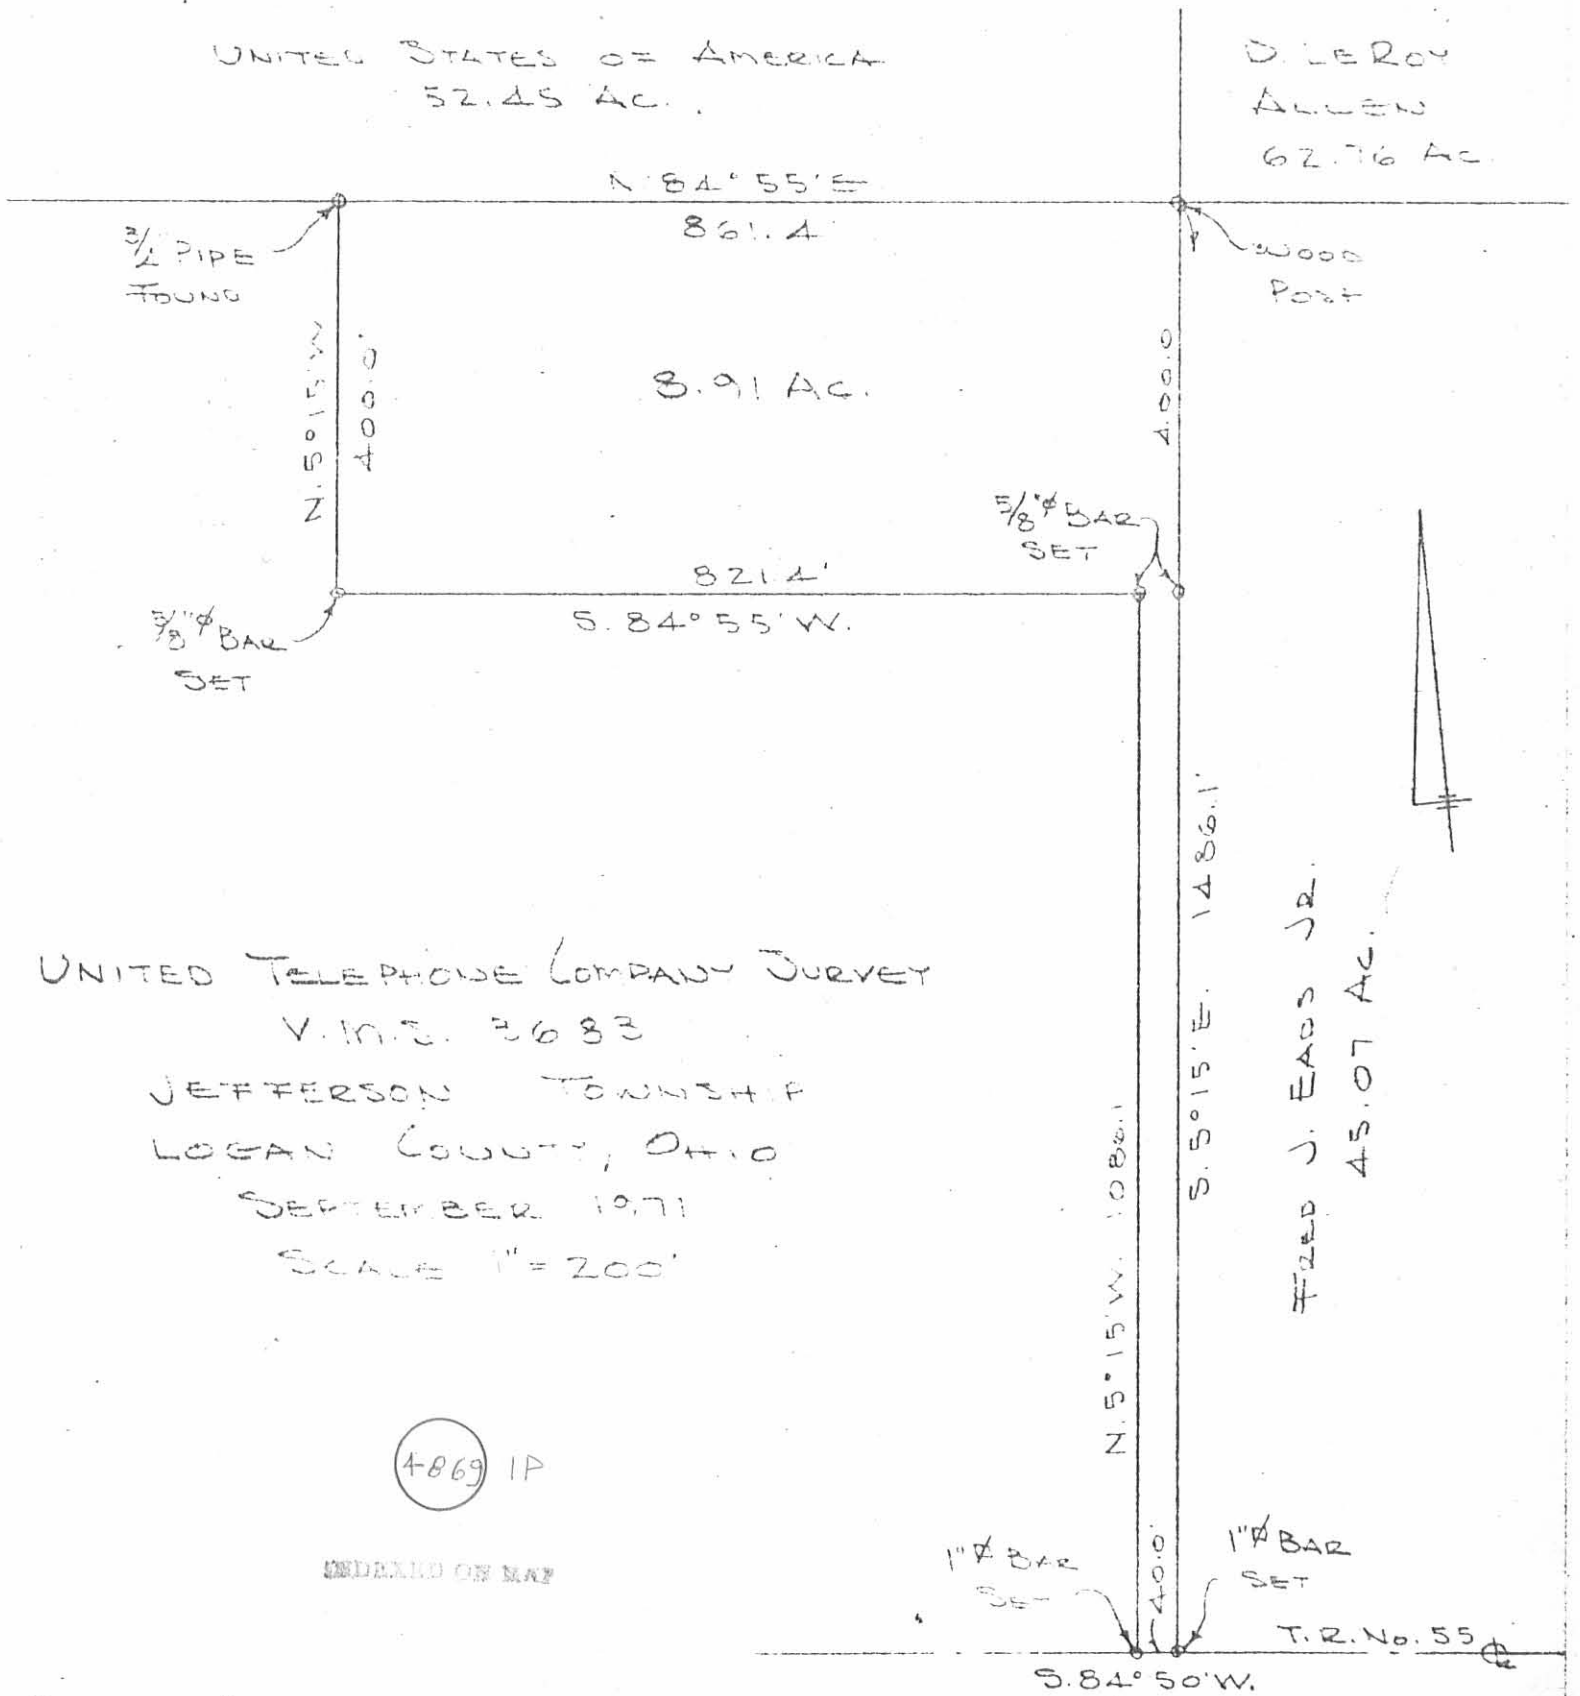 UNITED STATES OF AMERICA
52.45 AC.
D. LEROY
ALLEN
62.76 AC.
N 84° 55' E
861.4
3/4 PIPE
FOUND
WOOD
POST
N. 5° 15' W
400.0'
8.91 AC.
400.0
5/8"⌀ BAR
SET
821.4'
S. 84° 55' W.
5/8"⌀ BAR
SET
S. 5° 15' E. 1486.1'
FRED J. EADS JR.
45.07 AC.
UNITED TELEPHONE COMPANY SURVEY
V.M.S. 3683
JEFFERSON TOWNSHIP
LOGAN COUNTY, OHIO
SEPTEMBER 1971
SCALE 1" = 200'
N. 5° 15' W. 1086.1
4-869 1P
INDEXED ON MAP
1"⌀ BAR
SET
40.0'
1"⌀ BAR
SET
T.R. No. 55 ℄
S. 84° 50' W.